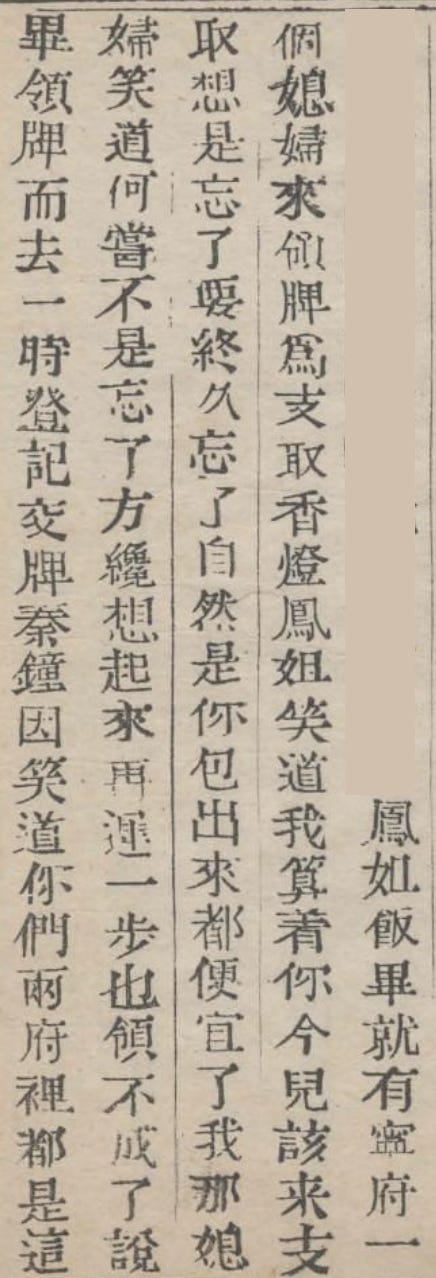 鳳姐飯畢就有寧府一
個媳婦來領牌爲支取香燈鳳姐笑道我算着你今兒該来支
取想是忘了要終久忘了自然是你包出來都便宜了我那媳
婦笑道何嘗不是忘了方纔想起來再遲一步也領不成了說
畢領牌而去一時登記交牌秦鐘因笑道你們兩府裡都是這